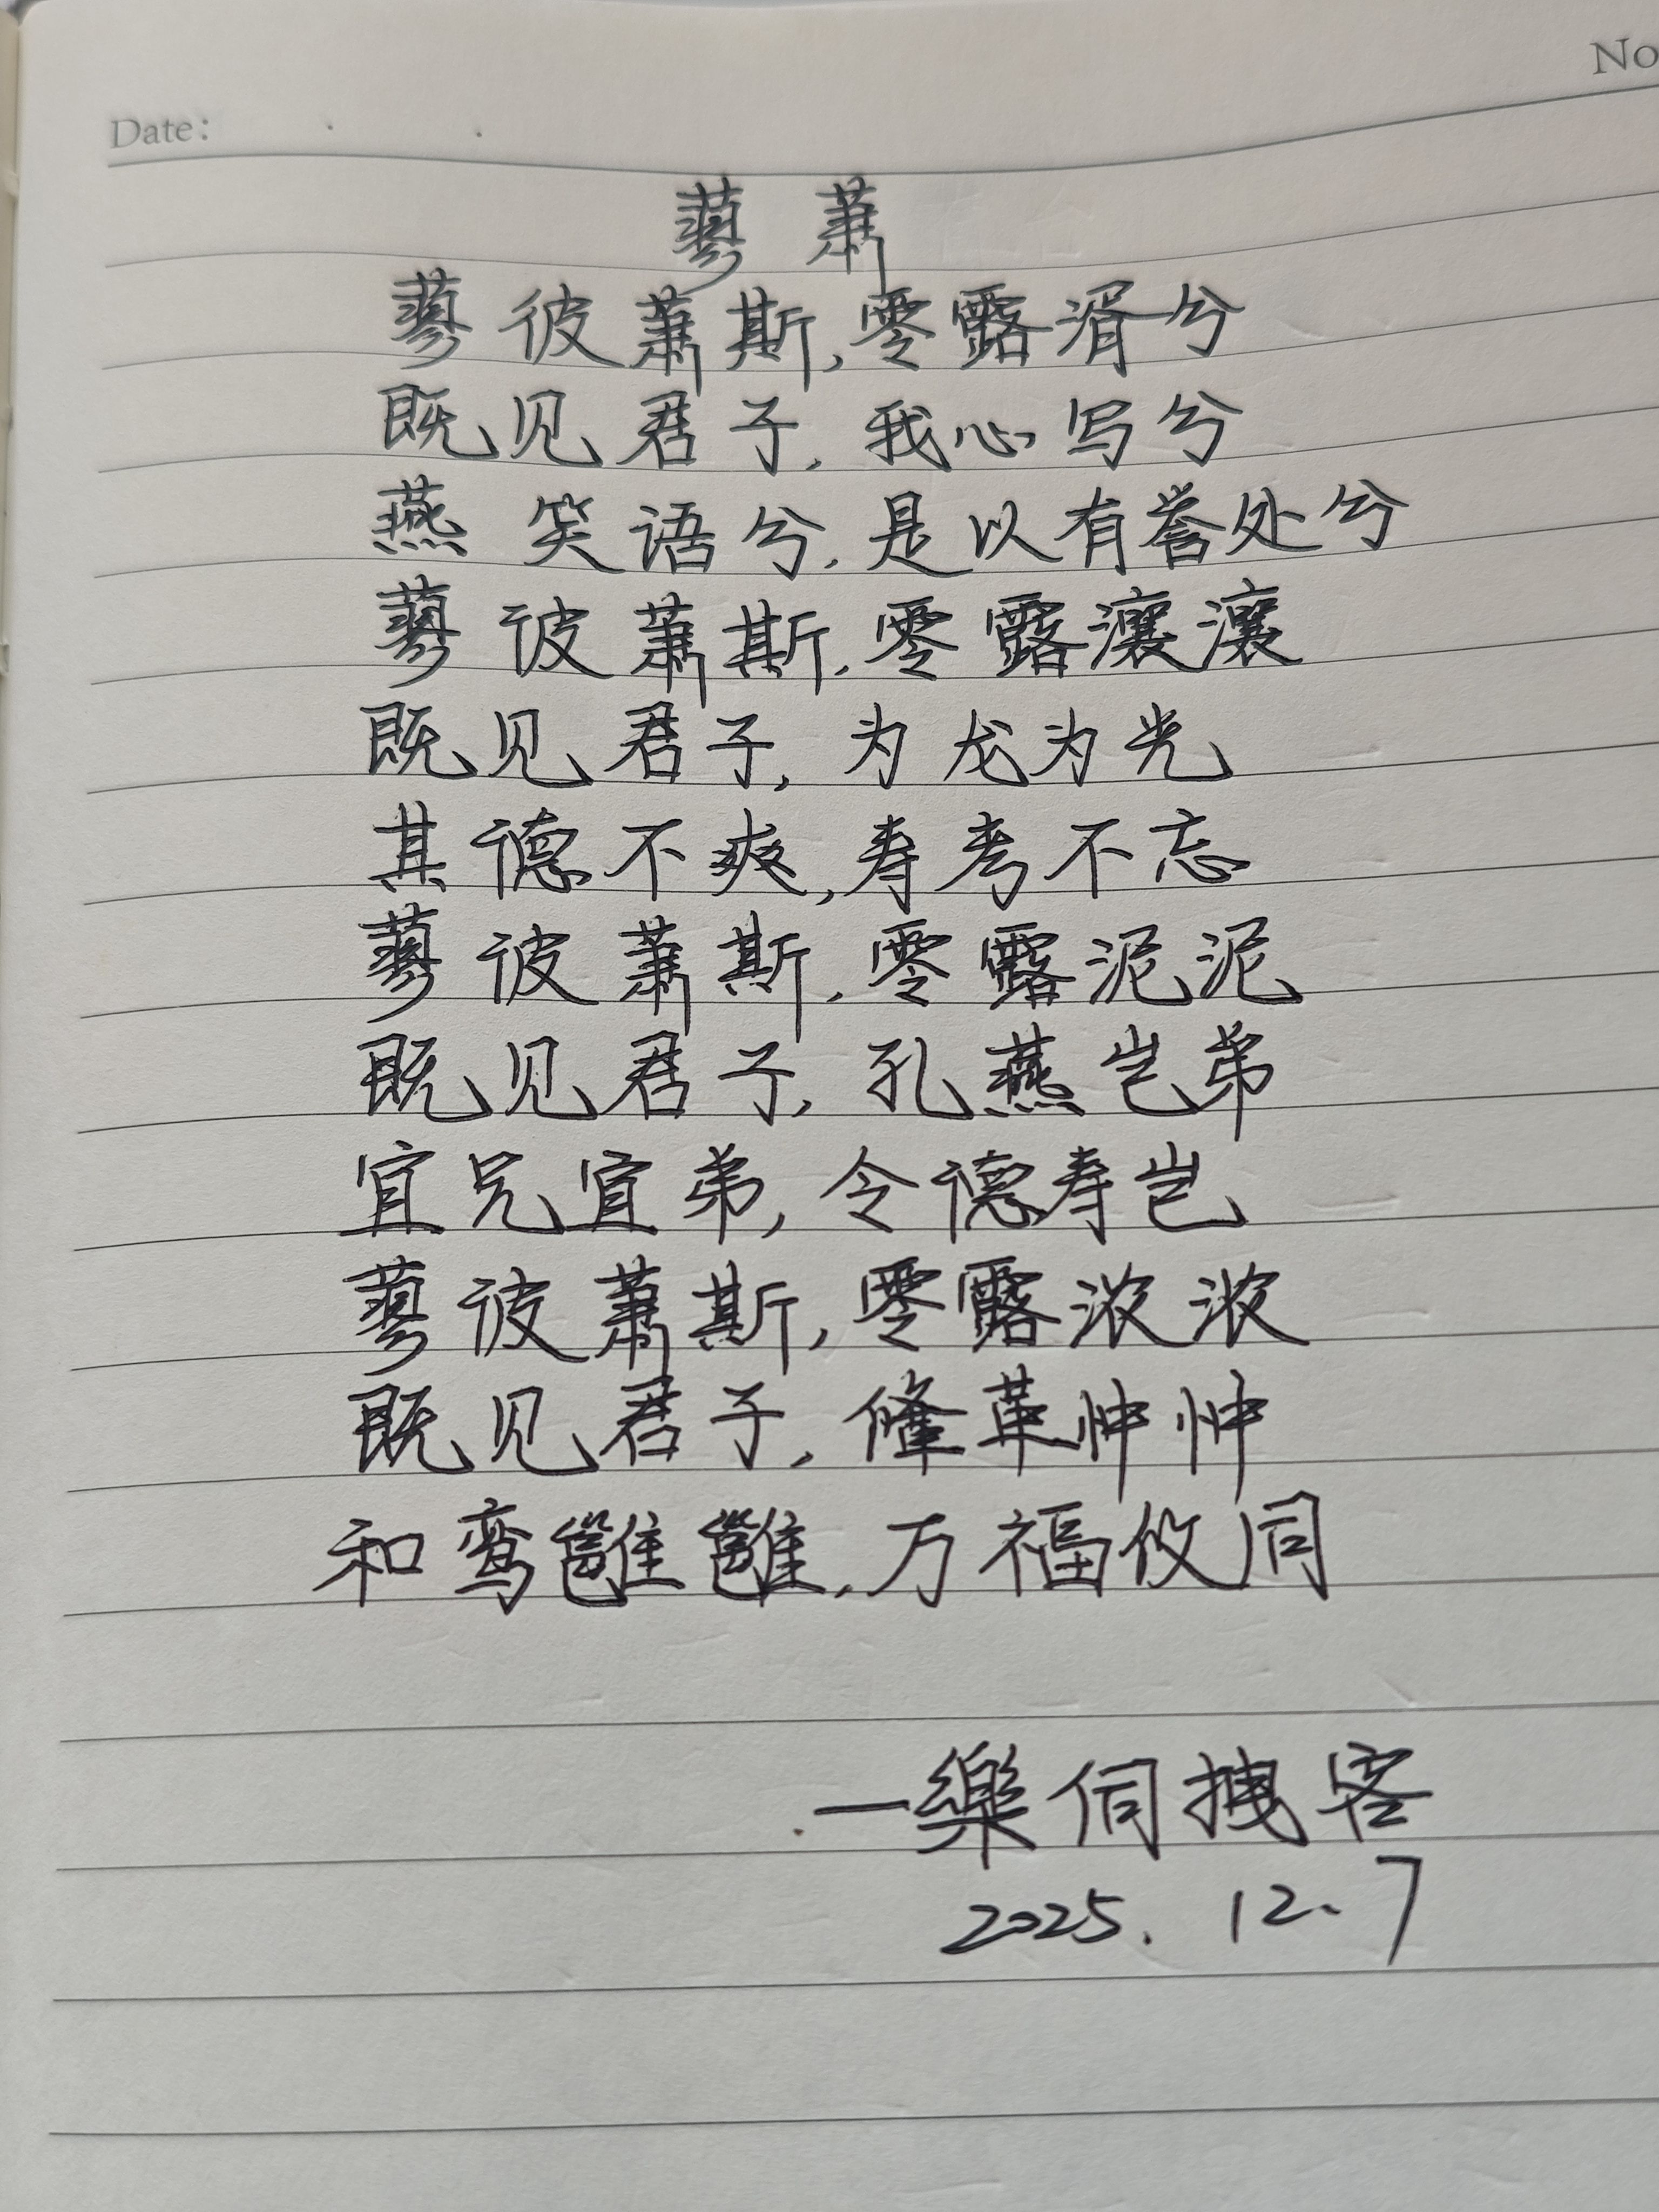 No
Date:
蓼萧
蓼彼萧斯,零露湑兮
既见君子,我心写兮
燕笑语兮,是以有誉处兮
蓼彼萧斯,零露瀼瀼
既见君子,为龙为光
其德不爽,寿考不忘
蓼彼萧斯,零露泥泥
既见君子,孔燕岂弟
宜兄宜弟,令德寿岂
蓼彼萧斯,零露浓浓
既见君子,鞗革忡忡
和鸾雝雝,万福攸同
一樂伺拽客
2025.12.7